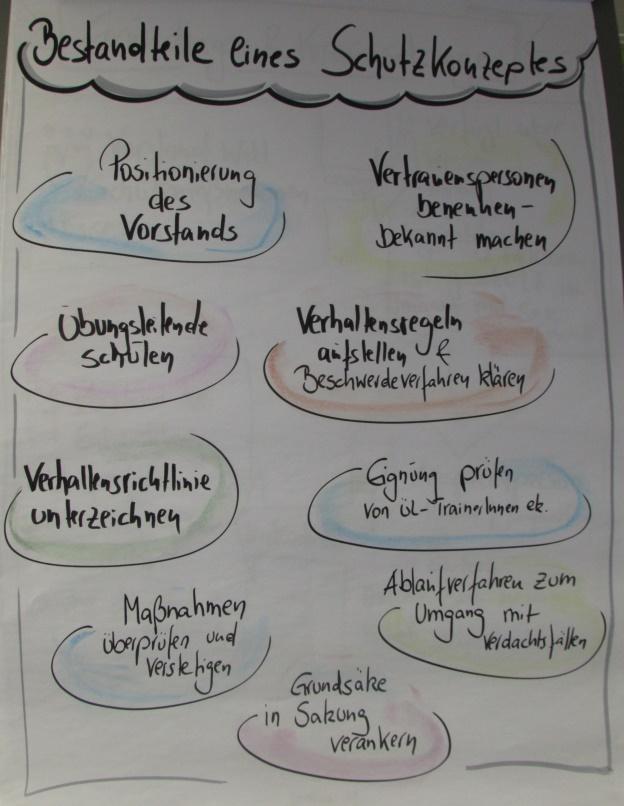 Bestandteile eines Schutzkonzeptes
Positionierung
des
Vorstands
Vertrauenspersonen
benennen-
bekannt machen
Übungsleitende
schulen
Verhaltensregeln
aufstellen &
Beschwerdeverfahren klären
Verhaltensrichtlinie
unterzeichnen
Eignung prüfen
von ÜL-TrainerInnen etc.
Maßnahmen
überprüfen und
verstetigen
Ablaufverfahren zum
Umgang mit
Verdachtsfällen
Grundsätze
in Satzung
verankern